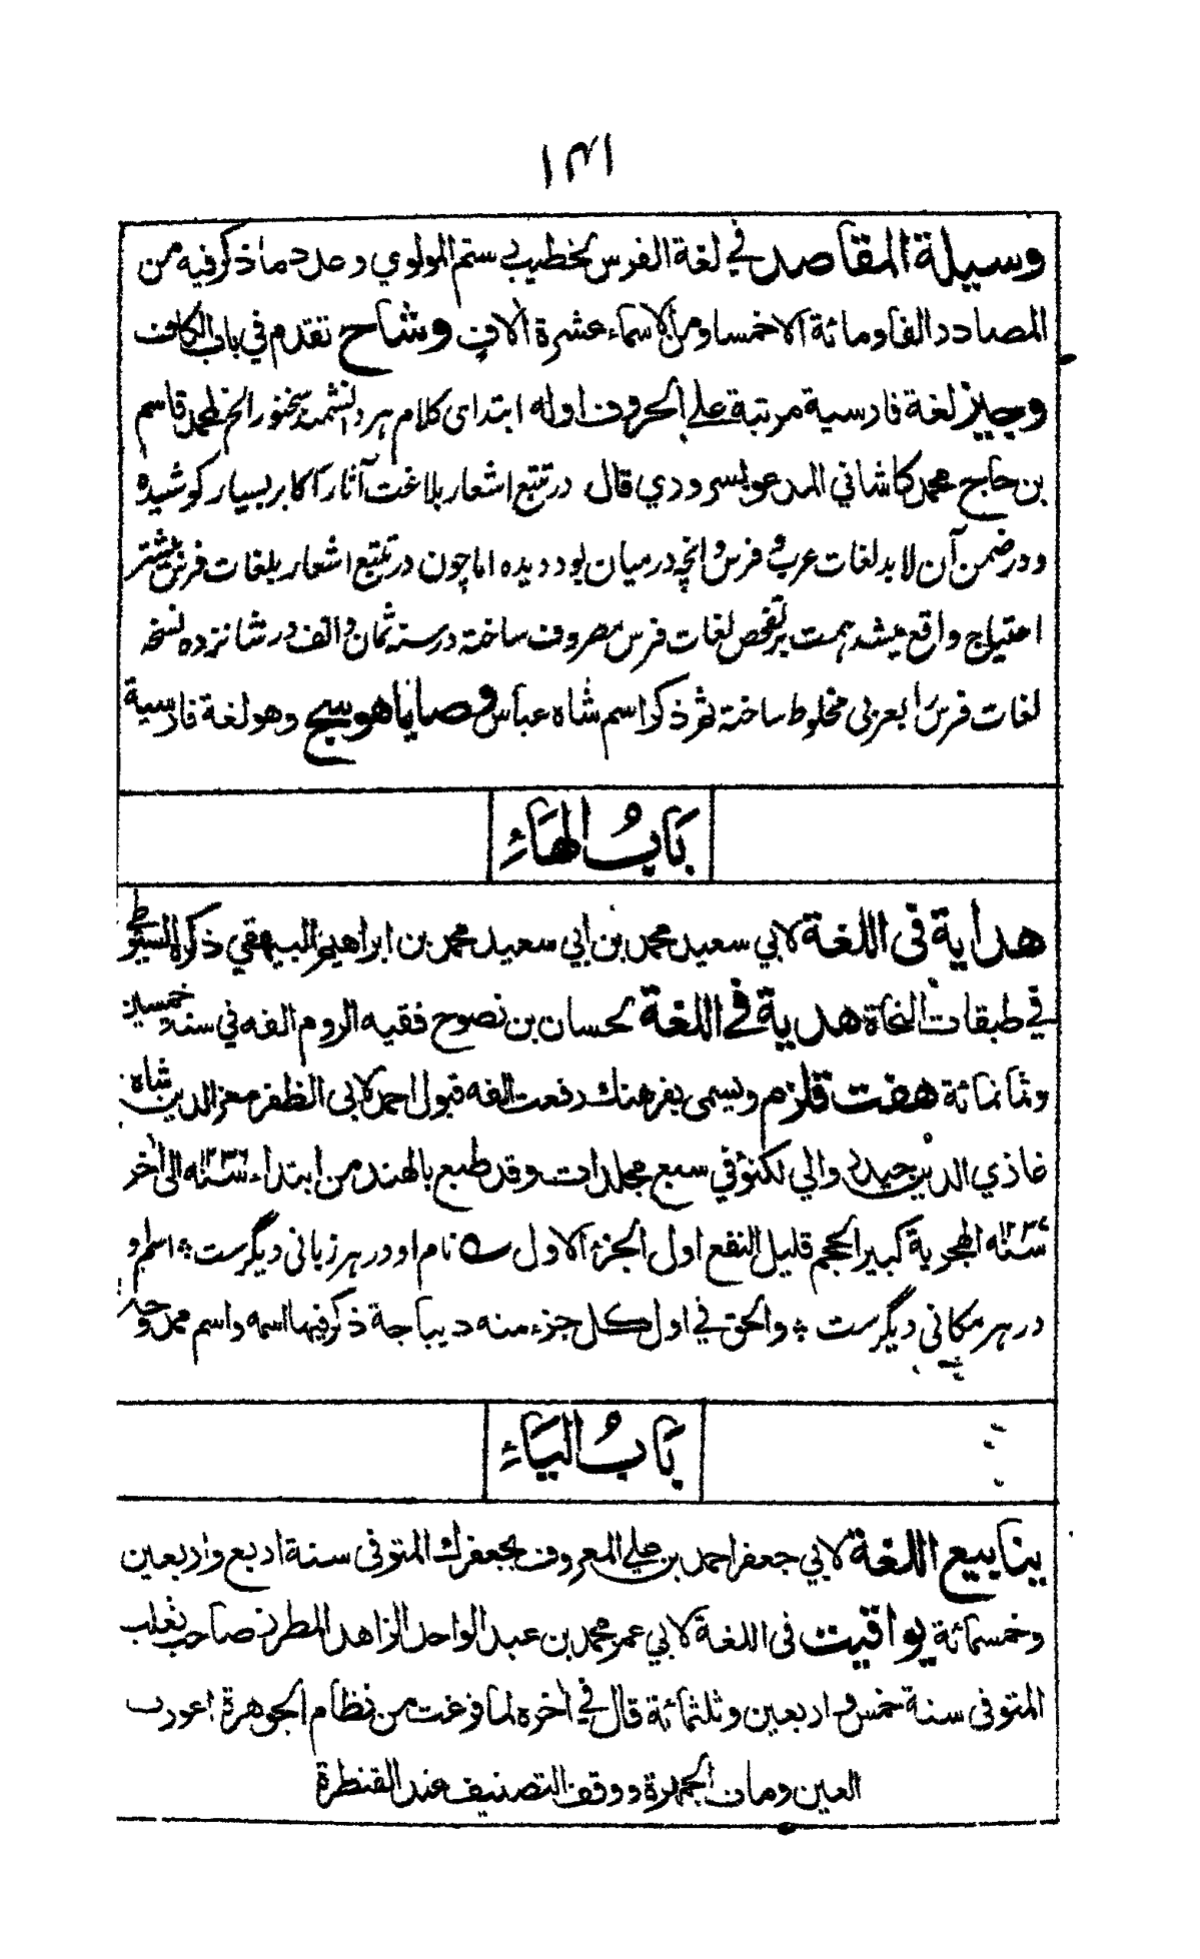 ١٣١
وسيلة المقاصد في لغة الفرس لخطيب رستم المولوي وعدد ما ذكر فيه من
المصادر الفا ومائة الا خمسا ومن الاسماء عشرة آلاف وشاح تقدم في باب الكاف
وجيز لغة فارسية مرتبة على الحروف اوله ابتداى كلام هر دانشمند سخنور الخ لمحمد قاسم
بن حاج محمد كاشاني المدعو بسروري قال در تتبع اشعار بلاغت آثار اكابر بسيار كوشيده
ودر ضمن آن لا بد لغات عرب و فرس و انچه در ميان بود ديده اما چون در تتبع اشعار بلغات فرس بيشتر
احتياج واقع ميشد همت بر تفحص لغات فرس مصروف ساخته در سنه ثمان و الف در شانزده نسخه
لغات فرس را بعربي مخلوط ساخته ثم ذكر اسم شاه عباس وصايا هوسبج وهو لغة فارسية
بَابُ الهَاءِ
هداية فى اللغة لابي سعيد محمد بن ابي سعيد محمد بن ابراهيم البيهقي ذكره السيوطي
في طبقات النحاة هدية في اللغة لحسان بن نصوح فقيه الروم الفه في سنة خمسين
وثمانمائة هفت قلزم ويسمى بفرهنك رفعت الفه قبول احمد لابى الظفر معز الدين شاه
غازي الدين حيدر والي لكنؤ في سبع مجلدات وقد طبع بالهند من ابتداء سنه ١٢٣٦ الى آخر
سنه ١٢٣٧ الهجرية كبير الحجم قليل النفع اول الجزء الاول ے نام او در هر زبانى ديگرست ؞ اسم او
در هر مكاني ديگرست ؞ والحق في اول كل جزء منه ديباجة ذكر فيها اسمه واسم ممدوحه
بَابُ اليَاءِ
ينابيع اللغة لابي جعفر احمد بن علي المعروف بجعفرك المتوفى سنة اربع واربعين
وخمسمائة يواقيت فى اللغة لابي عمر محمد بن عبد الواحد الزاهد المطرز صاحب ثعلب
المتوفى سنة خمس و اربعين وثلثمائة قال في آخره لما فرغت من نظام الجوهرة اعورت
العين ومات الجمهرة ووقف التصنيف عند القنطرة